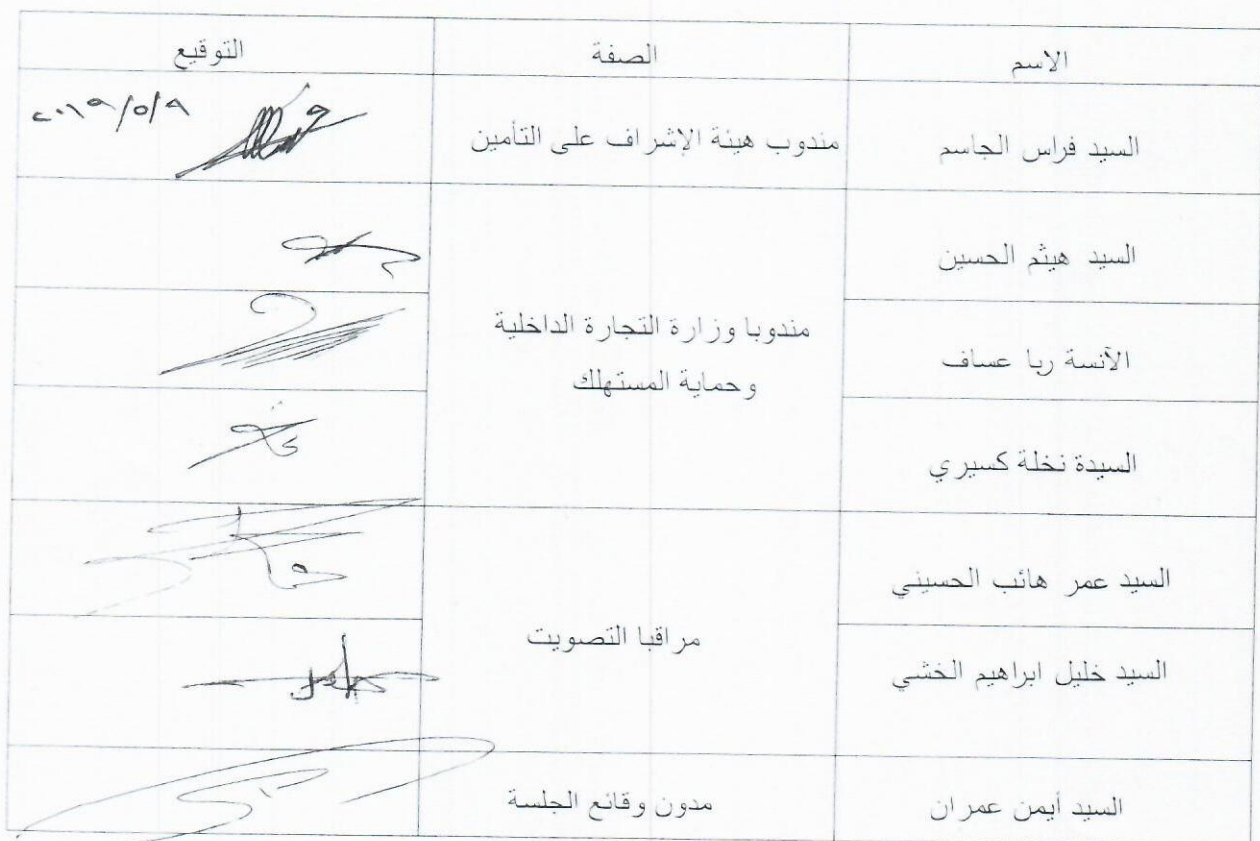 الاسم الصفة التوقيع
السيد فراس الجاسم مندوب هيئة الإشراف على التأمين ٢٠١٩/٥/٩
السيد هيثم الحسين
مندوبا وزارة التجارة الداخلية
وحماية المستهلك
الآنسة ربا عساف
السيدة نخلة كسيري
السيد عمر هائب الحسيني
مراقبا التصويت
السيد خليل ابراهيم الخشي
السيد أيمن عمران مدون وقائع الجلسة